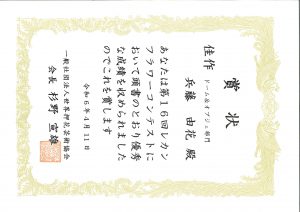 賞状
佳作 ドーム&オブジェ部門
兵藤 由花 殿
あなたは第16回レカン
フラワーコンテストに
おいて頭書のとおり優秀
な成績を収められました
のでこれを賞します
令和6年4月11日
一般社団法人世界押花芸術協会
会長 杉野 宣雄